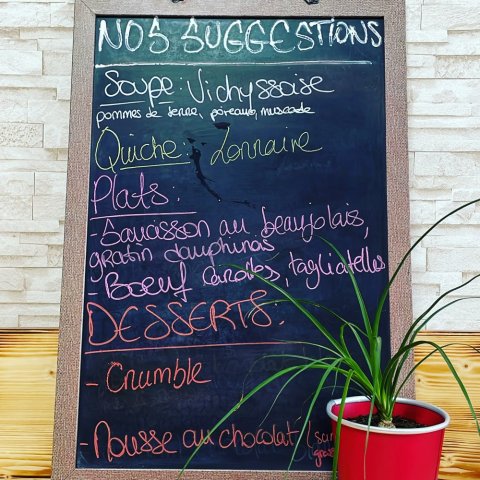 NOS SUGGESTIONS
Soupe: Vichyssoise
pommes de terre, poireaux, muscade
Quiche: Lorraine
Plats:
- Saucisson au beaujolais,
gratin dauphinois
- Boeuf carottes, tagliatelles
DESSERTS:
- Crumble
- Mousse au chocolat (san